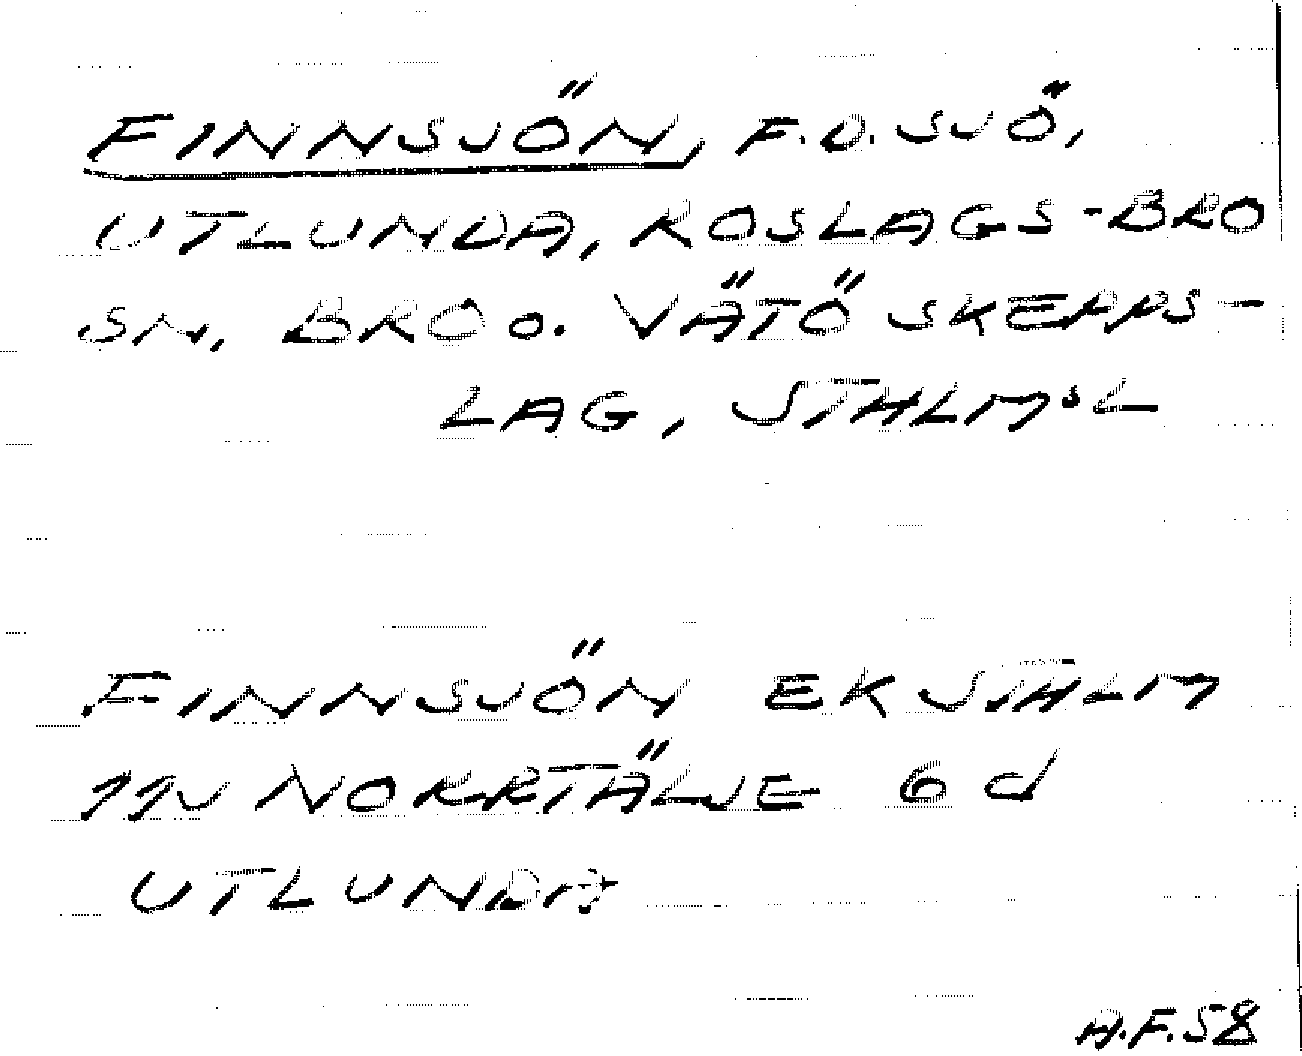 FINNSJÖN, F.D. SJÖ,
UTLUNDA, ROSLAGS-BRO
SN, BRO O. VÄTÖ SKEPPS-
LAG, STHLMS L
FINNSJÖN EK STHLM
11V NORRTÄLJE 6 d
UTLUNDA
A.F.58